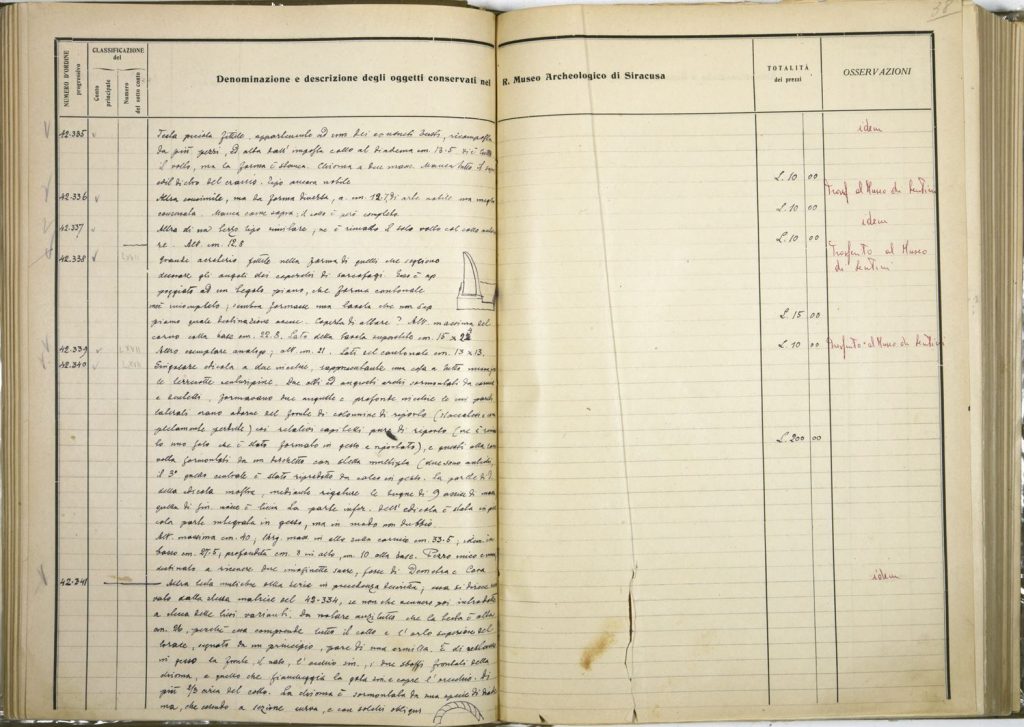 38
NUMERO D'ORDINE progressivo
CLASSIFICAZIONE del
Conto principale
Numero del sotto conto
Denominazione e descrizione degli oggetti conservati nel R. Museo Archeologico di Siracusa
TOTALITÀ dei prezzi
OSSERVAZIONI
42.335 Testa piccola fittile appartenente ad uno dei consueti busti, ricomposta idem
da più pezzi, ed alta dall'imposta collo al diadema cm. 13.5
il volto, ma la forma è stanca. Chioma a due masse. Manca tutto il
del cranio. Tipo ancora nobile L. 10 00
42.336 Altra consimile, ma da forma diversa, a. cm. 12.7, di arte nobile una meglio Trasf. al Museo di Lentini
conservata. Manca come sopra; il collo è però completo L. 10 00
42.337 Altra di un terzo tipo similare, ne è rimasto il solo volto col collo idem
re. Alt. cm. 12.8 L. 10 00
42.338 LXVII Grande acroterio fittile nella forma di quelli che sogliono Trasferito al Museo di Lentini
decorare gli angoli dei coperchi di sarcofagi. Esso è ap
poggiato ad un regolo piano, che forma cantonale
incompleto; sembra formasse una tavola che non sap
piamo quale destinazione avesse. Coperta di altare? Alt. massima del L. 15 00
corno colla base cm. 22.8. Lato della tavola superstite cm. 15 x 22
42.339 LXVII Altro esemplare analogo; alt. cm. 21. Lati del cantonale cm. 13 x 13. L. 10 00 Trasferito al Museo di Lentini
42.340 LXVII Singolare edicola a due nicchie, rappresentante una cosa a tutto
le terrecotte centuripine. Due alti ed angusti archi sormontati da cornice
e dentelli, formavano due anguste e profonde nicchie le cui pareti
laterali erano adorne nel fronte di colonnine di riporto (staccatesi e com
pletamente perdute) coi relativi capitelli pure di riporto (ne è rima
to uno solo che è stato formato in gesso e riportato), e questi alla loro L. 200 00
volta sormontati da un dischetto con stella multipla (due sono antiche,
il 3° quello centrale è stato riprodotto da calco in gesso. La parete di
della edicola mostra, mediante rigature le bugne di 9 assise di
quella di sin. invece è liscia. La parte infer. dell'edicola è stata in pic
cola parte integrata in gesso, ma in modo non dubbio.
Alt. massima cm. 40; larg. mass. in alto sulla cornice cm. 33.5; idem in
basso cm. 27.5; profondità cm. 8 in alto, cm. 10 alla base. Pezzo unico e
destinato a ricevere due imaginette sacre, forse di Demetra e Cora
42.341 Altra testa muliebre della serie in precedenza descritta, essa si direbbe idem
dalla stessa matrice del 42.334, se non che vennero poi introdotte
a stecca delle lievi varianti. Da notare anzitutto che la testa è alta
cm. 26, perché essa comprende tutto il collo e l'orlo superiore del
torace, segnato da un principio, pare di una armilla. È di restauro
in gesso la fronte, il naso, l'occhio sin., i due sboffi frontali della
chioma, e quello che fiancheggia la gota sin. e copre l'orecchio. Di
più 2/3 circa del collo. La chioma è sormontata da una specie di diade
ma, che essendo a sezione curva, e con solchi obliqui